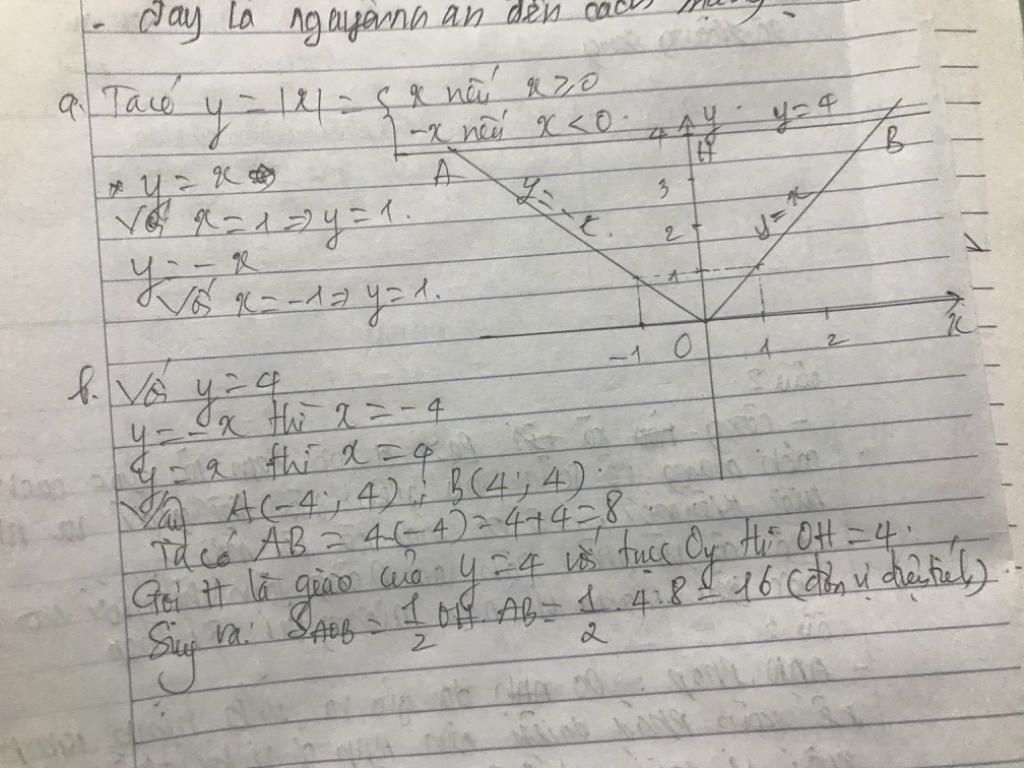 - đây là nguyên nhân dẫn đến cách mạng.
a. Ta có y = |x| = { x nếu x ≥ 0
-x nếu x < 0.
4 y y = 4
H
A B
* y = x
3
y = -x.
Với x = 1 => y = 1.
2 y = x
y = - x
1
Với x = -1 => y = 1.
x
-1 0 1 2
b. Với y = 4
y = -x thì x = -4
y = x thì x = 4
Vậy A(-4; 4); B(4; 4).
Ta có AB = 4-(-4) = 4+4 = 8
Gọi H là giao của y = 4 với trục Oy thì OH = 4.
Suy ra: S_AOB = 1/2 OH. AB = 1/2 . 4 . 8 = 16 (đơn vị diện tích)